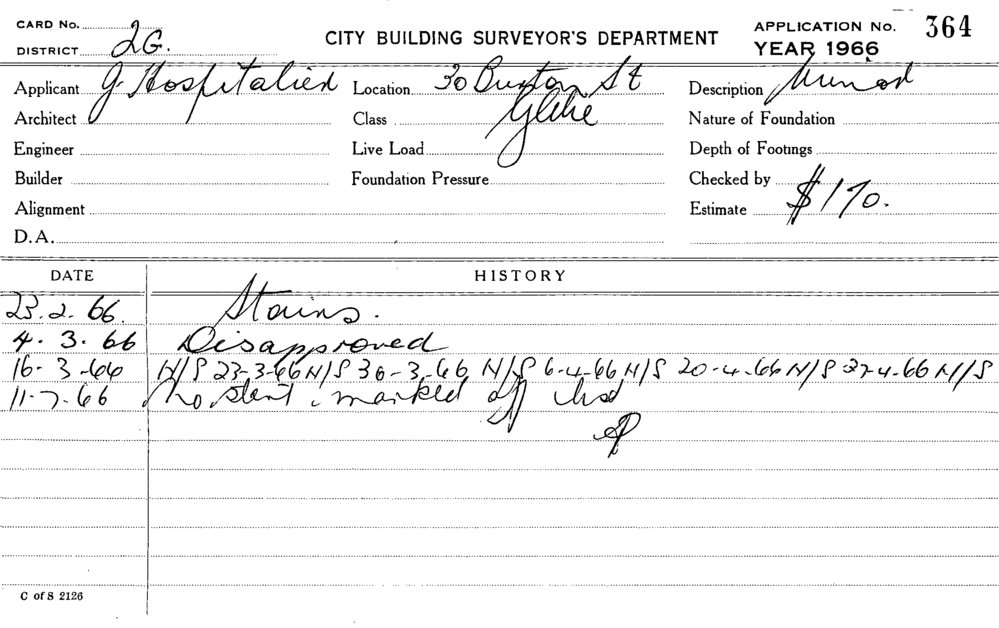 CARD No. 2G. CITY BUILDING SURVEYOR'S DEPARTMENT APPLICATION No. 364
DISTRICT YEAR 1966
Applicant J. Hospitalier Location 30 Buxton St Description
Architect Class Glebe Nature of Foundation
Engineer Live Load Depth of Footings
Builder Foundation Pressure Checked by
Alignment Estimate $170.
D.A.
DATE HISTORY
23.2.66. Stains.
4.3.66 Disapproved
16-3-66 N/S 23-3-66 N/S 30-3-66 N/S 6-4-66 N/S 20-4-66 N/S 27-4-66 N/S
11-7-66 No start. marked off
C of S 2126